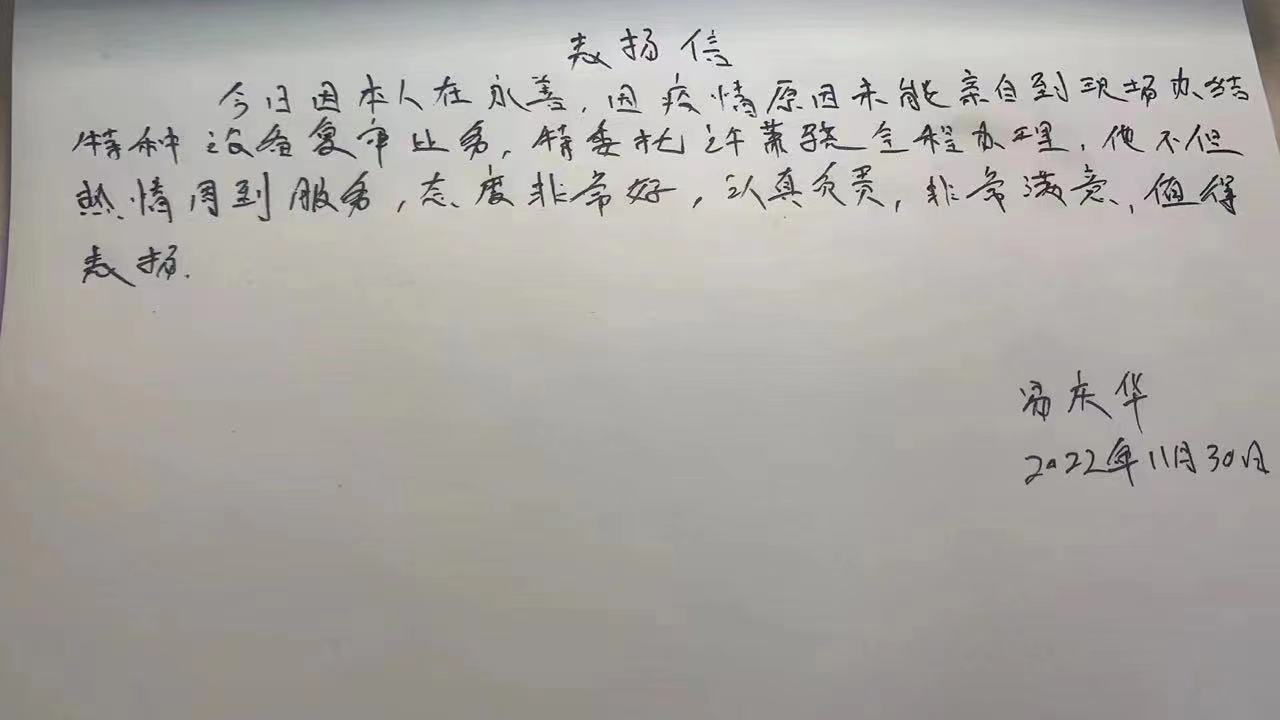 表扬信
今日因本人在永善,因疫情原因未能亲自到现场办结
特种设备复审业务,特委托许萧骁全程办理,他不但
热情周到服务,态度非常好,认真负责,非常满意,值得
表扬.
冯庆华
2022年11月30日